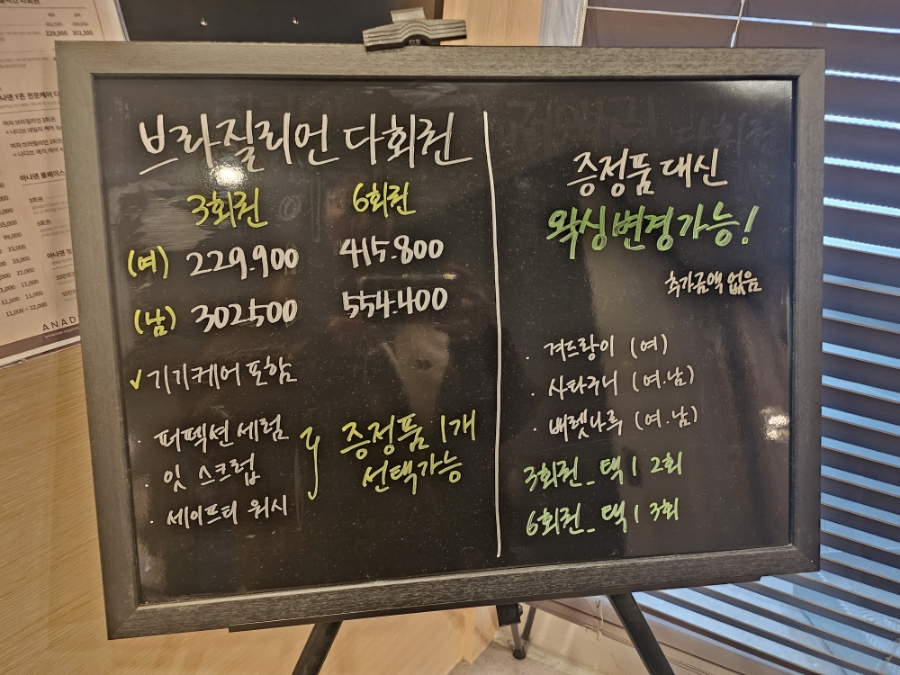 브라질리언 다회권
3회권 6회권
(여) 229.900 415.800
(남) 302500 554.400
✓기기케어 포함
· 퍼펙션 세럼
· 잇 스크럽
· 세이프티 워시
} 증정품 1개
선택가능
증정품 대신
왁싱변경가능!
추가금액 없음
· 겨드랑이 (여)
· 사타구니 (여.남)
· 배렛나루 (여.남)
3회권_택1 2회
6회권_택1 3회
229,900 302,500
ANAD